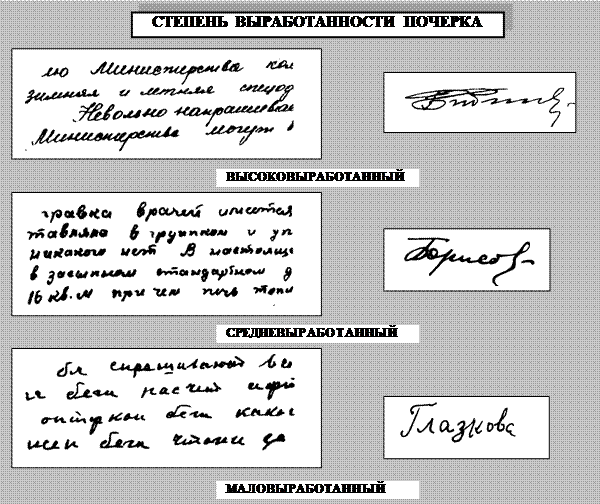 СТЕПЕНЬ ВЫРАБОТАННОСТИ ПОЧЕРКА
лю Министерства ком
зимняя и летняя спецод
Невольно напрашивае
Министерства могут
ВЫСОКОВЫРАБОТАННЫЙ
травка врачей имеется
тавляла в групном и
никакого нет В настояще
в засыпном стандартном д
16 кв. м при чем печь топи
Борисов
СРЕДНЕВЫРАБОТАННЫЙ
бы спрашивают
беги насчет
беги какое
беги чтоли да
Глазкова
МАЛОВЫРАБОТАННЫЙ